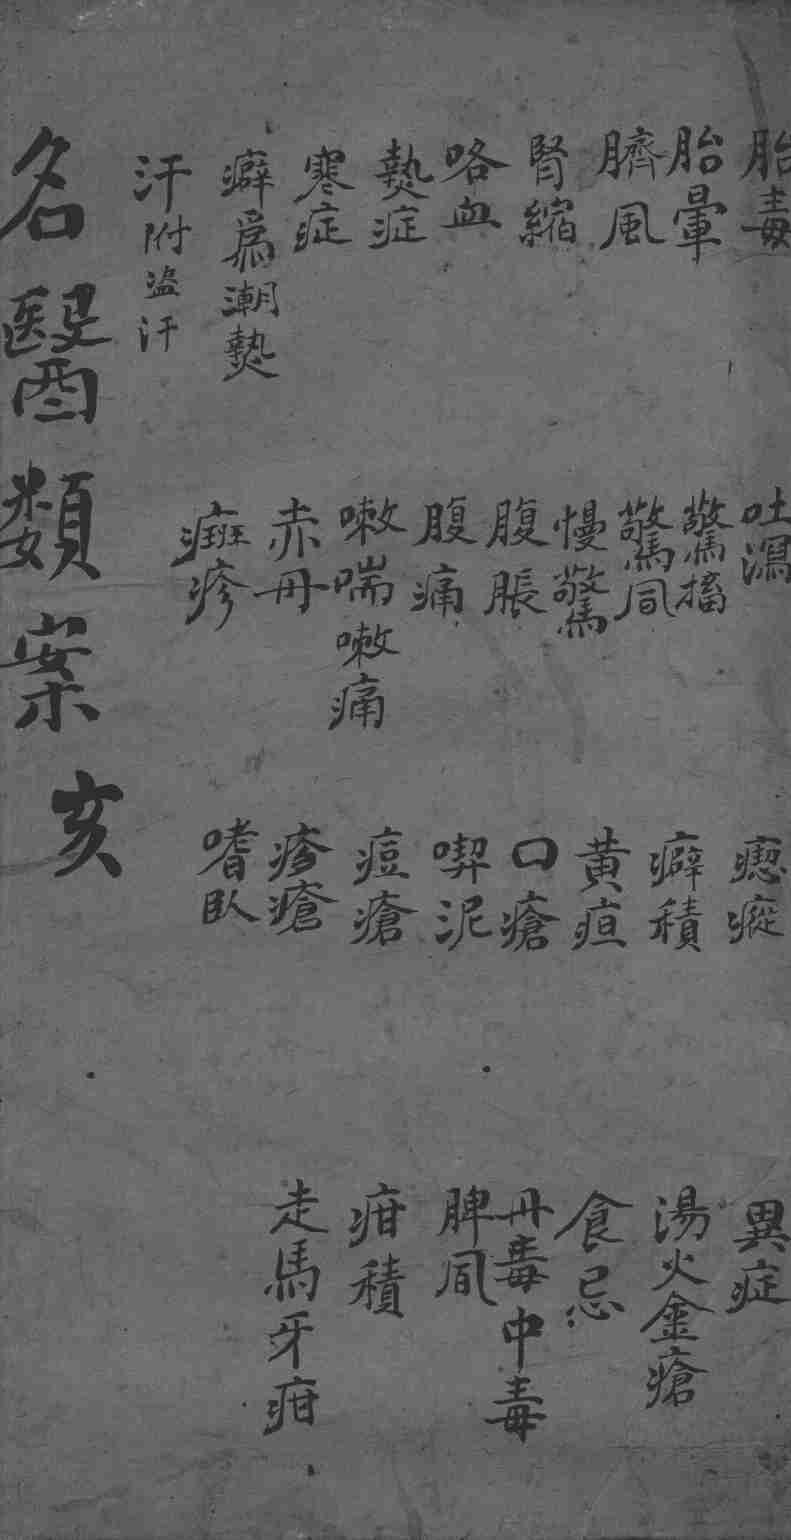 胎毒
胎暈
臍風
腎縮
咯血
熱症
寒症
癖爲潮熱
汗附盗汗
吐瀉
驚搐
驚風
慢驚
腹脹
腹痛
嗽喘嗽痛
赤丹
癍疹
瘛瘲
癖積
黃疸
口瘡
喫泥
痘瘡
疹瘡
嗜臥
異症
湯火金瘡
食忌
丹毒中毒
脾風
疳積
走馬牙疳
名醫類案 亥